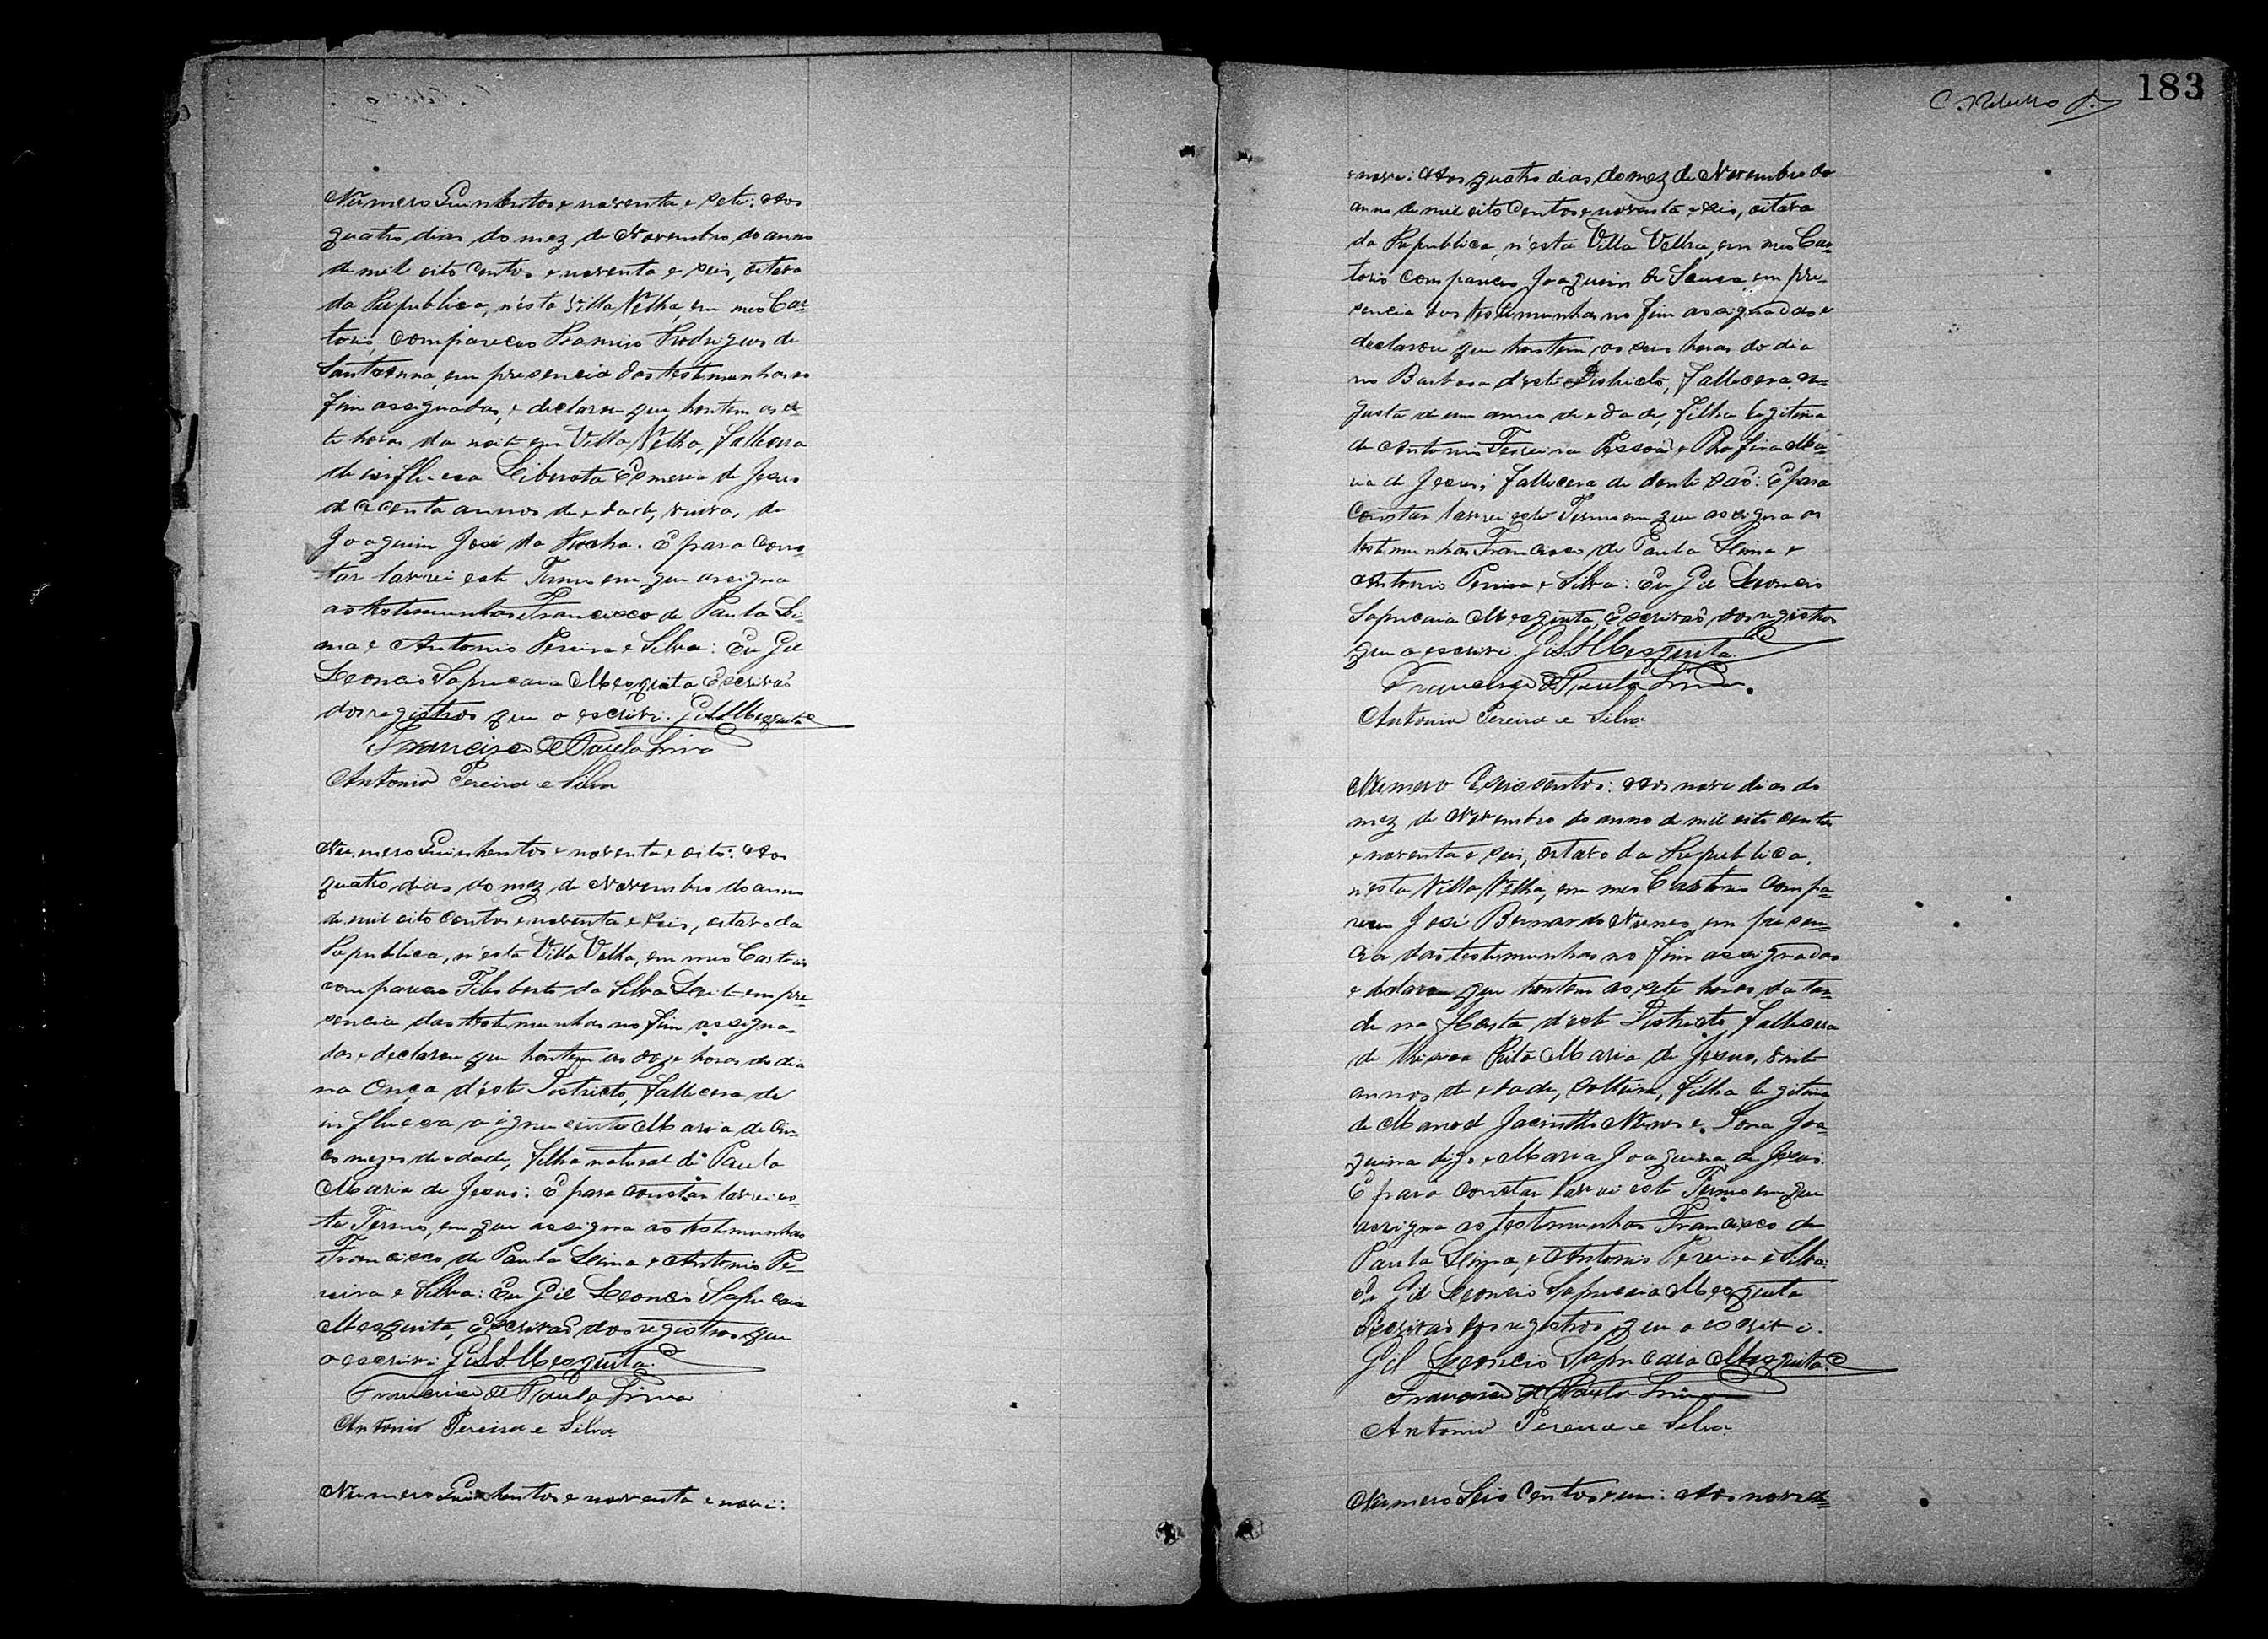 Numero Quinhentos e noventa e sete: Aos
quatro dias do mez de Novembro do anno
de mil oito centos e noventa e seis, oitavo
da Republica, nésta Villa Velha, em meo Car=
torio, compareceo Ramiro Rodrigues de
Santanna, em presencia das testemunhas no
fim assignadas, e declarou que hontem as se=
te horas da noite em Villa Velha, fallecera
de influesa Liberata Esmeria de Jesus
de annos de edade, viuva, de
Joaquim José da Rocha. E para cons=
tar lavrei este Termo em que assigna
as testemunhas Francisco de Paula Li=
ma e Antonio Pereira e Silva: Eu Gil
Leoncio Sapucaia Mesquita Escrivaõ
dos registros que o escrivi. Gil L. S. Mesquita
Francisco de Paula Lima
Antonio Pereira e Silva
Numero Quinhentos e noventa e oito: Aos
quatro dias do mez de Novembro do anno
de mil oito centos e noventa e seis, oitavo da
Republica, n'ésta Villa Velha, em meo Cartorio
compareceo Filisberto da Silva Leite em pre=
sencia das testemunhas no fim assigna=
das e declarou que hontem as doze horas do dia
na Onça d'éste Districto, fallecera de
influesa Maria de cin=
co mezes de edade, filha natural de Paula
Maria de Jesus: E para constar lavrei es=
te Termo, em que assigna as testemunhas
Francisco de Paula Lima e Antonio Pe=
reira e Silva: Eu Gil Leoncio Sapucaia
Mesquita, Escrivaõ dos registros que
o escrivi Gil L. S. Mesquita.
Francisco de Paula Lima
Antonio Pereira e Silva.
Numero Quinhentos e noventa e nove:
183
e nove: Aos quatro dias do mez de Novembro do
anno de mil oito centos e noventa e seis, oitavo
da Republica, n'ésta Villa Velha, em meo Car=
torio compareceo Joaquim de Sousa, em pre=
sencia das testemunhas no fim assignadas e
declarou que hontem, as seis horas do dia
no Barbosa d'éste Districto, fallecera Au=
gusta de um anno de edade, filha legitima
de Antonio Ferreira Pessoa e Rofina Ma=
ria de Jesus; fallecera de dentisaõ: E para
constar lavrei este Termo em que assigna as
testemunhas Francisco de Paula Lima e
Antonio Pereira e Silva: Eu Gil Leoncio
Sapucaia Mesquita, Escrivaõ dos registros
que o escrivi. Gil L. S. Mesquita.
Francisco de Paula Lima.
Antonio Pereira e Silva
Numero Seiscentos: Aos nove dias do
mez de Novembro do anno de mil oito centos
e noventa e seis, oitavo da Republica.
n'ésta Villa Velha, em meo Cartorio compa=
receo José Bernardo Nunes, em presen=
cia das testemunhas no fim assignadas
e declarou que hontem as sete horas da tar=
de na Horta d'éste Districto, fallecera
de thisica Rita Maria de Jesus, vinte
annos de edade, solteira, filha legitima
de Manoel Jacintho Nunes e Dona Joa=
quina digo e Maria Joaquina de Jesus.
E para constar lavrei este Termo em que
assigna as testemunhas Francisco de
Paula Lima, e Antonio Pereira e Silva:
Eu Gil Leoncio Sapucaia Mesquita
Escrivaõ dos registros que o escrivi.
Gil Leoncio Sapucaia Mesquita
Francisco de Paula Lima
Antonio Pereira e Silva.
Numero Seis centos e um: Aos nove di=